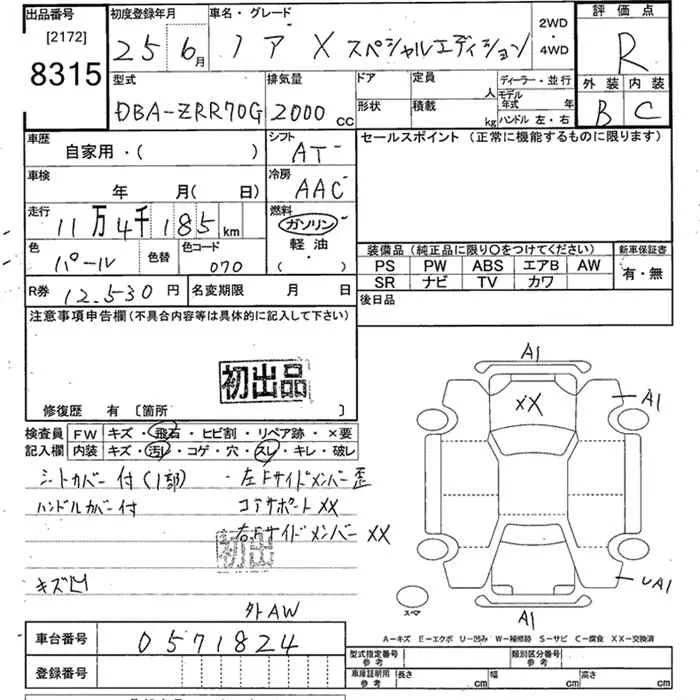 出品番号 [2172] 8315
初度登録年月 25 6月
車名・グレード ノア X スペシャルエディション
2WD・4WD
評価点 R
外装 B 内装 C
型式 DBA-ZRR70G
排気量 2000 cc
ドア 形状
定員 人
積載 kg
ディーラー・並行
モデル年式 年
ハンドル 左・右
車歴 自家用・( )
シフト AT
セールスポイント (正常に機能するものに限ります)
車検 年 月( 日)
冷房 AAC
走行 11万4千185km
燃料 ガソリン 軽油 ( )
色 パール 色替 色コード 070
装備品 (純正品に限り○をつけてください)
新車保証書 有・無
PS PW ABS エアB AW
SR ナビ TV カワ
R券 12.530円 名変期限 月 日
後日品
注意事項申告欄 (不具合内容等は具体的に記入して下さい)
初出品
修復歴 有 [箇所 ]
検査員記入欄
FW キズ・飛石・ヒビ割・リペア跡・×要
内装 キズ・汚レ・コゲ・穴・スレ・キレ・破レ
シートカバー付(1部) ・左Fサイドメンバー歪
ハンドルカバー付 コアサポートXX
右Fサイドメンバー XX
初出
キズ凹
外AW
A1
XX
A1
UA1
A1
スペア
A－キズ E－エクボ U－凹み W－補修跡 S－サビ C－腐食 XX－交換済
車台番号 0571824
登録番号
型式指定番号 参考
類別区分番号 参考
車庫証明用 参考 長さ cm 幅 cm 高さ cm